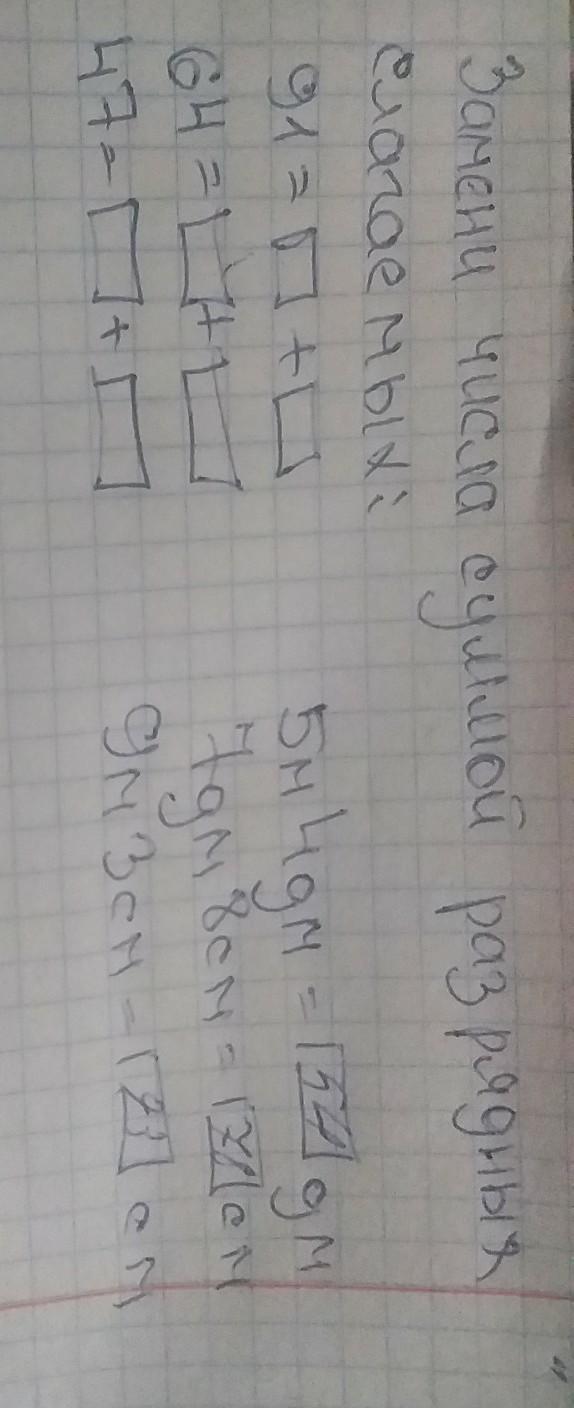 Замени числа суммой разрядных
слагаемых:
91 = □ + □
64 = □ + □
47 = □ + □
5м 4дм = 54 дм
7дм 8см = см
9м 3см = см